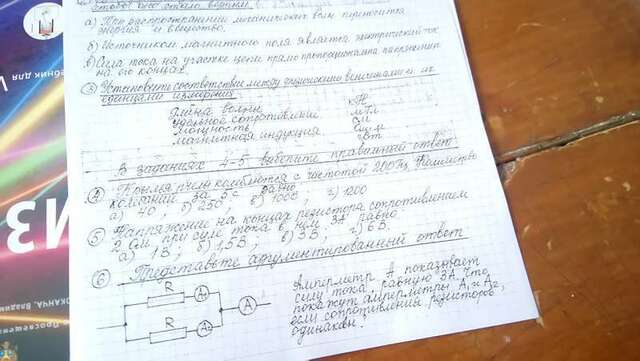 а) При распространении механических волн переносится
энергия и вещество.
б) Источником магнитного поля является электрический ток
в) Сила тока на участке цепи прямо пропорциональна напряжению
на его концах.
③ Установить соответствие между физическими величинами и их
единицами измерения
Длина волны кН
удельное сопротивление мТл
мощность см
магнитная индукция Ом·м
кВт
В заданиях 4-5 выберите правильный ответ
④ Крылья пчелы колеблются с частотой 200 Гц. Количество
колебаний за 5 с равно
а) 40; б) 250; в) 1000; г) 1200
⑤ Напряжение на концах резистора сопротивлением
2 Ом при силе тока в нем 3А равно
а) 1В; б) 1,5В; в) 3В; г) 6В.
⑥ Представьте аргументированный ответ
R A₁
A
R A₂
Амперметр А показывает
силу тока, равную 3А. Что
покажут амперметры А₁ и А₂,
если сопротивления резисторов
одинаковы.
ОКАНЧА, Владими
Просвещени